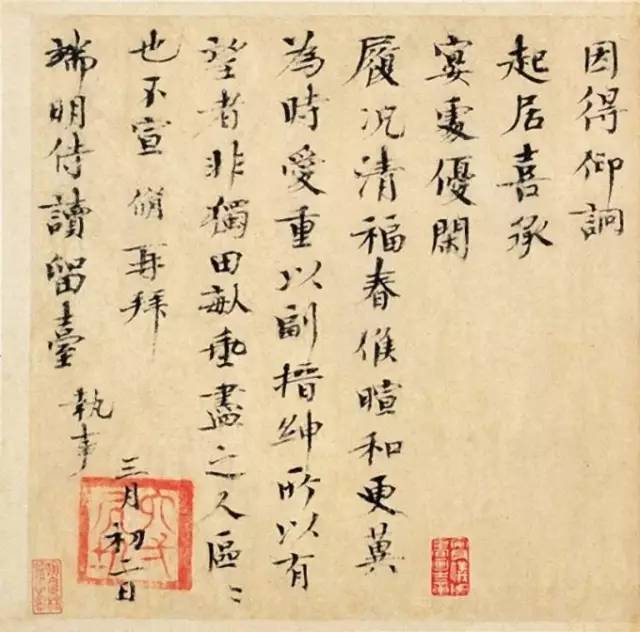 因得仰詢
起居喜承
宴處優閑
履況清福春候暄和更冀
為時愛重以副搢紳所以有
望者非獨田畝垂盡之人區〻
也不宣 脩再拜
端明侍讀留臺 執事
三月初二日